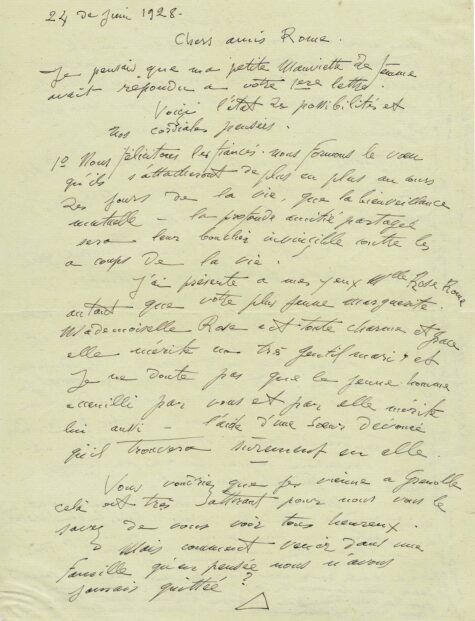 24 de juin 1928.
Chers amis Rome.
Je pensais que ma petite Mauviette de femme
avait répondu a votre 1ere lettre.
Voici l'état de possibilités et
nos cordiales pensées.
1º Nous félicitons les fiancés. nous formons le vœu
qu'ils s'attacheront de plus en plus au cours
des jours de la vie, que la bienveillance
mutuelle — la profonde amitié partagée
sera leur bouclier invincible contre les
a coups de la vie.
J'ai présente a mes yeux Mlle Rose Rome
autant que votre plus jeune marguerite.
Mademoiselle Rose est toute charme et grace
elle mérite un très gentil mari, et
Je ne doute pas que le jeune homme
accueilli par vous et par elle mérite
lui aussi — d'une sœur devouée
qu'il trouvera surement en elle.
Vous voudriez que je vienne a Grenoble
celà est très pour nous vous le
savez de vous voir tous heureux.
Mais comment venir dans une
Famille qu'en pensée nous n'avons
jamais quittée?